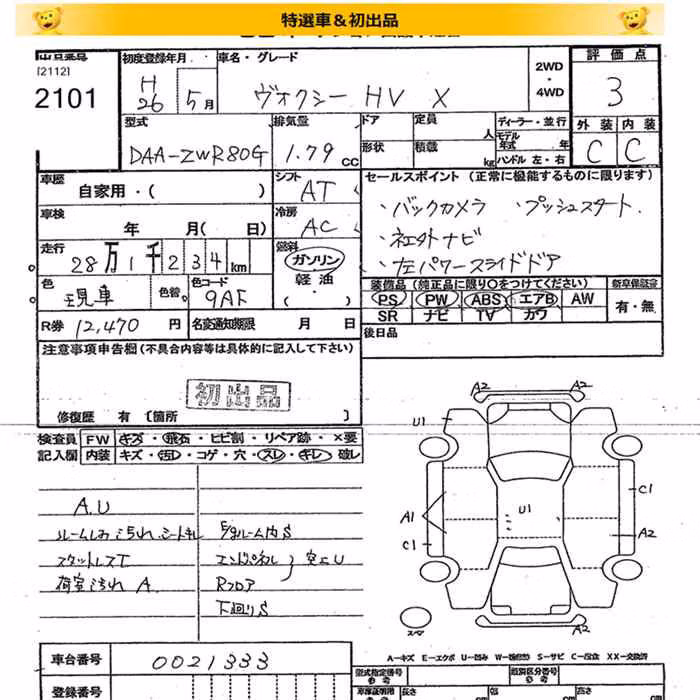 特選車＆初出品
出品番号
[2112]
2101
初度登録年月
H
26
5月
車名・グレード
ヴォクシー HV X
2WD
・
4WD
評価点
3
外装 内装
C C
型式
DAA-ZWR80G
排気量
1.79 CC
ドア
形状
定員 人
積載 kg
ディーラー・並行
モデル年式 年
ハンドル 左・右
車歴
自家用・( )
シフト
AT
セールスポイント (正常に機能するものに限ります)
・バックカメラ ・プッシュスタート
・社外ナビ
・左パワースライドドア
車検
年 月( 日)
冷房
AC
走行
28万1千234km
燃料
ガソリン
軽油
( )
色
現車
色替
色コード
9AF
装備品 (純正品に限り○をつけてください)
PS PW ABS エアB AW
SR ナビ TV カワ
新車保証書
有・無
R券 12,470 円
名変通知期限 月 日
後日品
注意事項申告欄 (不具合内容等は具体的に記入して下さい)
初出品
修復歴 有 〔箇所 〕
検査員
記入欄
FW キズ・飛石・ヒビ割・リペア跡・×要
内装 キズ・汚レ・コゲ・穴・スレ・キレ・破レ
A.U
ルームしみ汚れ、シートキレ
スタットレスT
荷室汚れ A.
ルーム内S
エンドパネル
Rフロア
突上U
下廻りS
A2
A2
U1
C1
A1
U1
C1
A2
スペア
A2
A-キズ E-エクボ U-凹み W-補修跡 S-サビ C-腐食 XX-交換済
車台番号 0021333
登録番号
型式指定番号
参考
類別区分番号
参考
長さ cm 幅 cm 高さ cm